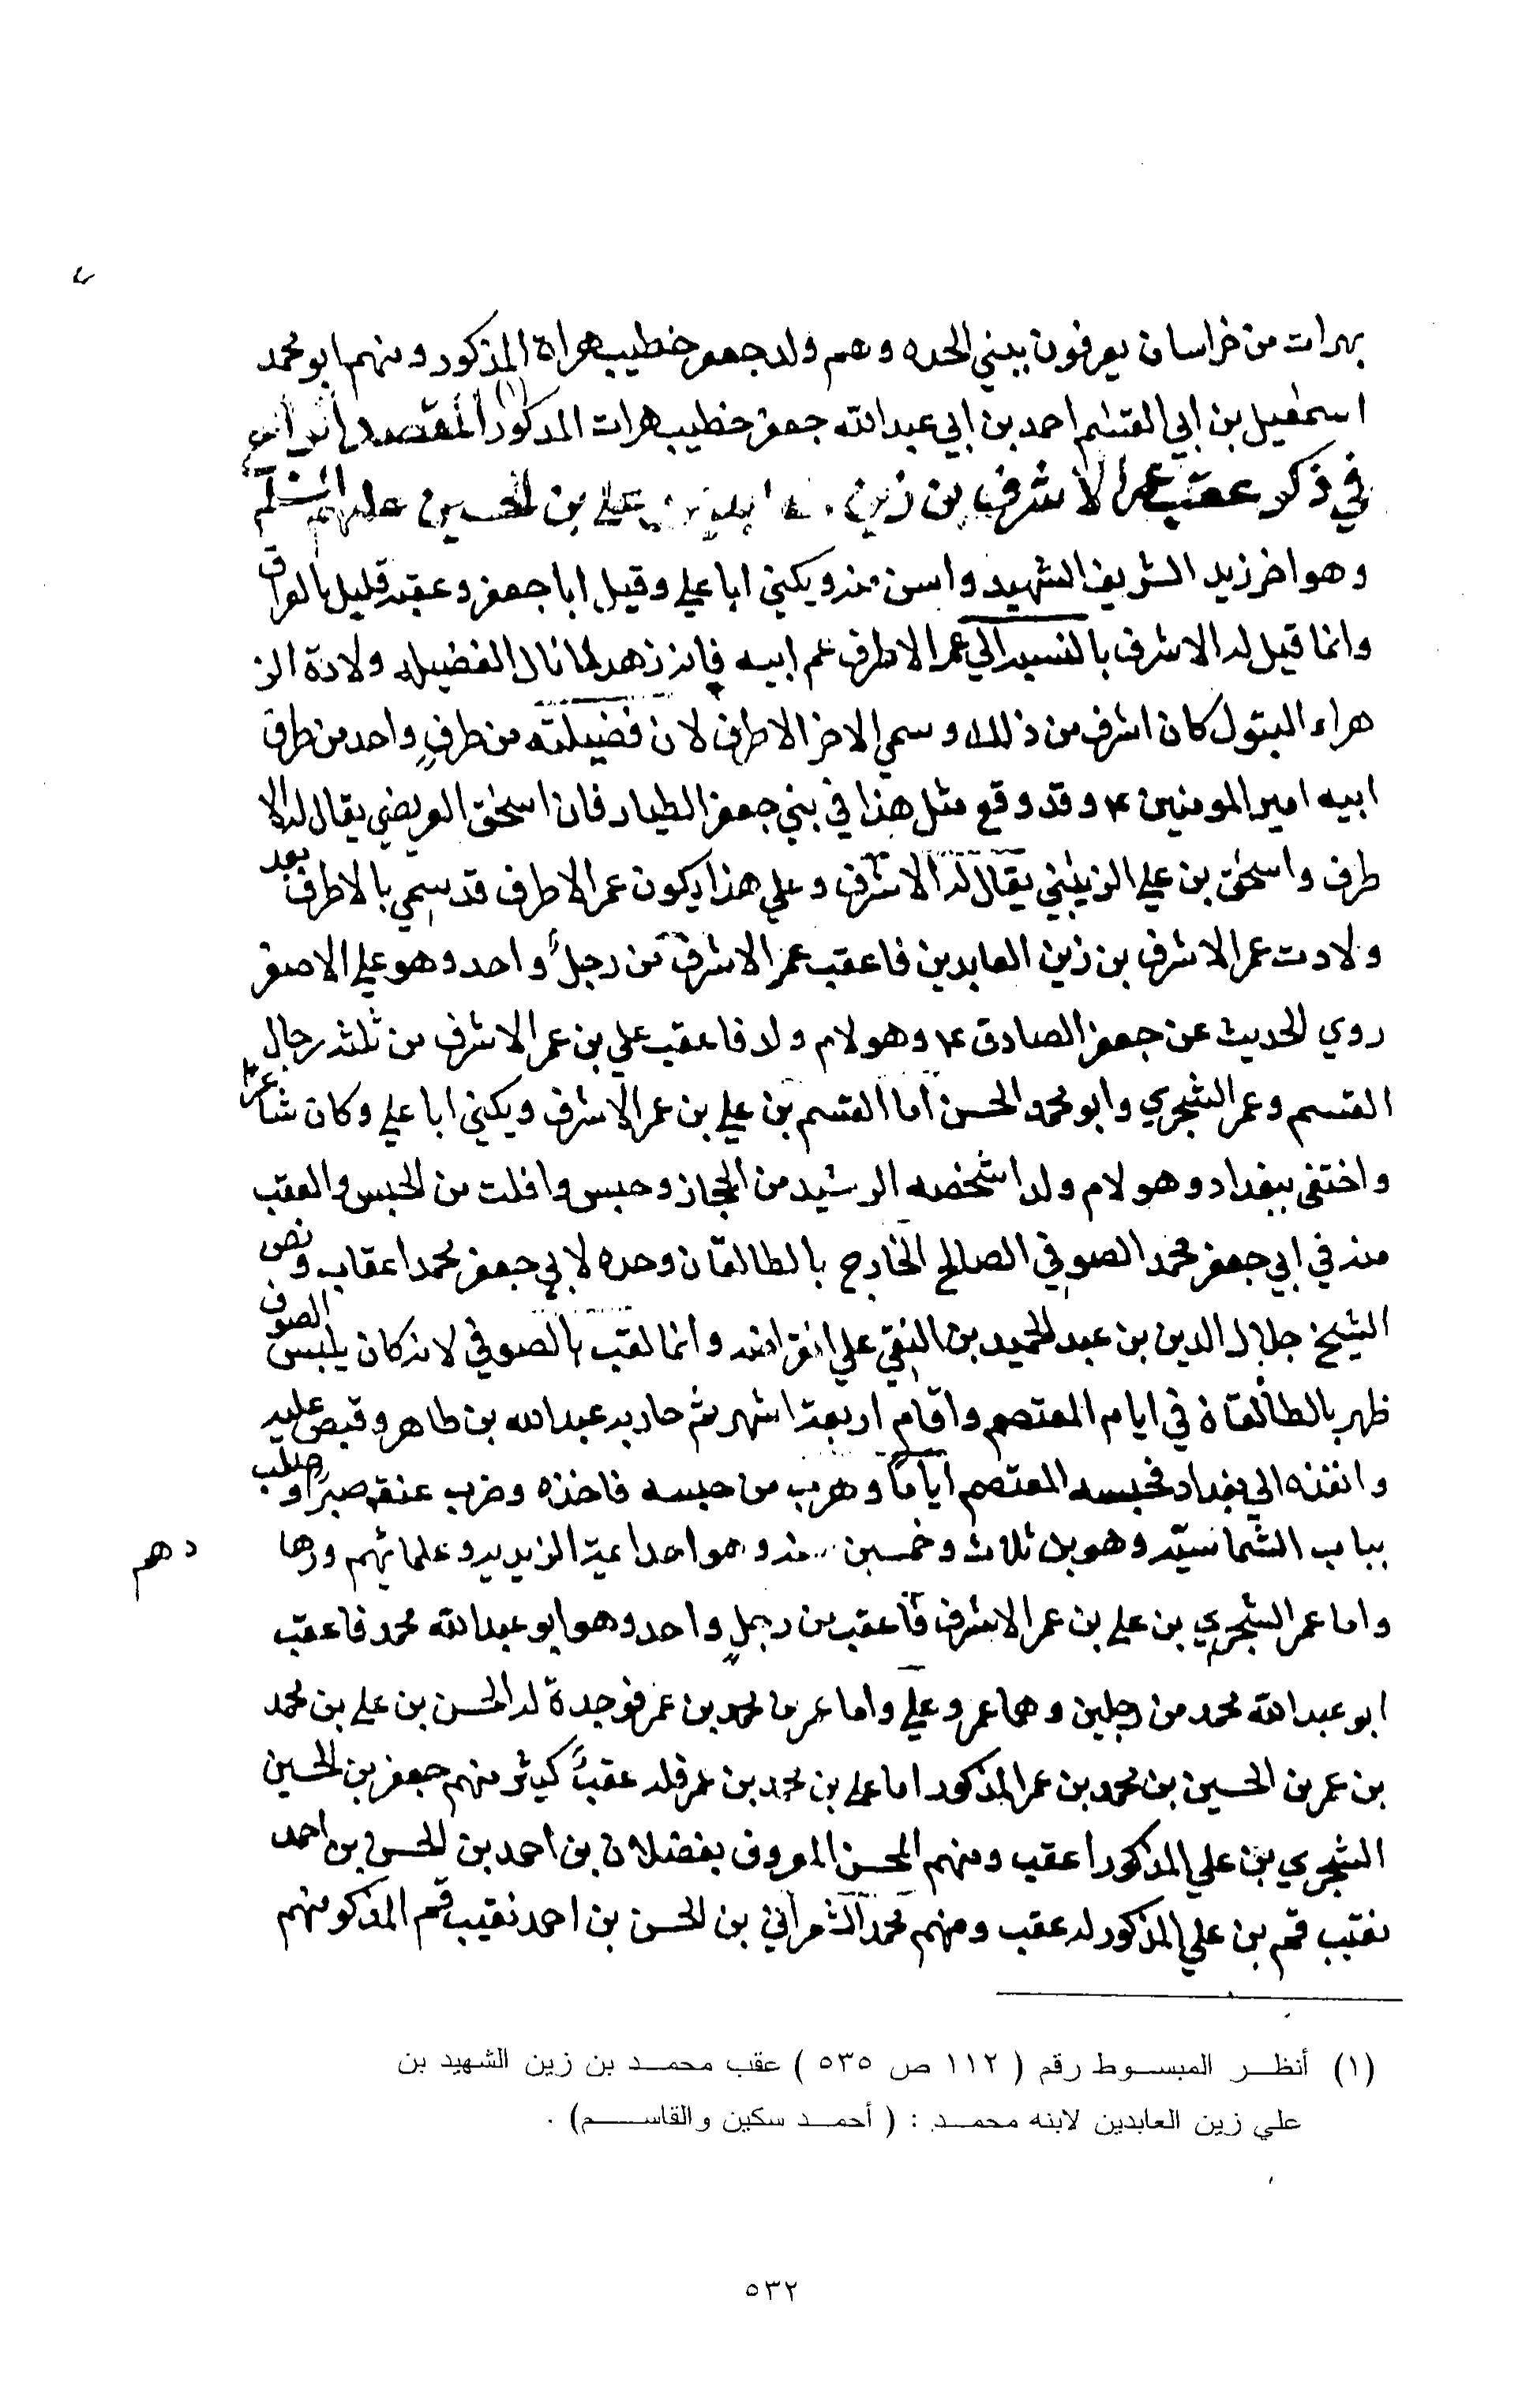 بهرات من خراسان يعرفون ببني الحده وهم ولد جعفر خطيب هراة المذكور ومنهم ابو محمد
اسمعيل بن ابي القسم احمد بن ابي عبدالله جعفر خطيب هرات المذكور (١) المقصد
في ذكر عقب عمر الاشرف بن زين علي بن الحسين عليهم السلم
وهو اخر زيد الشريف الشهيد واسن منه ويكني ابا علي وقيل ابا جعفر وعقبه قليل بالعراق
وانما قيل له الاشرف بالنسبه الي عمر الاطرف عم ابيه فانه نهد لما نال الفضيله ولادة الز
هراء البتول كان اشرف من ذلك وسمي الاخر الاطرف لان فضيلته من طرفٍ واحد من طرف
ابيه امير المومنين ع وقد وقع مثل هذا في بني جعفر الطيار فان اسحق العريضي يقال له الا
طرف واسحق بن علي الزينبي يقال له الاشرف وعلي هذا يكون عمر الاطرف قد سمي بالاطرف بعد
ولادت عمر الاشرف بن زين العابدين فاعقب عمر الاشرف من رجل واحد وهو علي الاصغر
روي الحديث عن جعفر الصادق ع وهو لام ولد فاعقب علي بن عمر الاشرف من ثلثه رجال
القسم وعمر الشجري وابو محمد الحسن اما القسم بن علي بن عمر الاشرف ويكني ابا علي وكان شاعرا
واختفي ببغداد وهو لام ولد اشخصه الرشيد من الحجاز وحبس وافلت من الحبس والعقب
منه في ابي جعفر محمد الصوفي الصالح الخارج بالطالقان وحده لابي جعفر محمد اعقاب ونص
الشيخ جلال الدين بن عبد الحميد بن التقي علي انقراضه وانما لقب بالصوفي لانه كان يلبس الصوف
ظهر بالطالقان في ايام المعتصم واقام اربعة اشهر ثم حاربه عبدالله بن طاهر وقبض عليه
وانفذه الي بغداد فحبسه المعتصم اياماً وهرب من حبسه فاخذه وضرب عنقه صبراً وصلب
بباب الشماسيّه وهو بن ثلاث وخمسين سنه وهو احد ائمة الزيديه وعلمائهم وزها دهم
واما عمر الشجري بن علي بن عمر الاشرف فاعقب من رجلٍ واحد وهو ابو عبدالله محمد فاعقب
ابو عبدالله محمد من رجلين وهما عمر وعلي واما عمر بن محمد بن عمر فوجدة له الحسن بن علي بن محمد
بن عمر بن الحسين بن محمد بن عمر المذكور اما علي بن محمد بن عمر فله عقبٌ كثير منهم جعفر بن الحسين
الشجري بن علي المذكور اعقب ومنهم المحسن المعروف بفضلان بن احمد بن الحسن بن احمد
نقيب قم بن علي المذكور له عقب ومنهم محمد الشعراني بن الحسن بن احمد نقيب قم المذكو منهم
(١) أنظر المبسوط رقم ( ١١٢ ص ٥٣٥ ) عقب محمد بن زين الشهيد بن
علي زين العابدين لابنه محمد : ( أحمد سكين والقاسم) .
٥٣٢